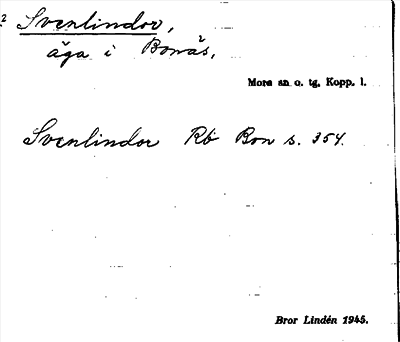 ? Svenlindor,
äga i Bonäs,
Mora sn o. tg. Kopp. l.
Svenlindor Rb Bon s. 354.
Bror Lindén 1945.